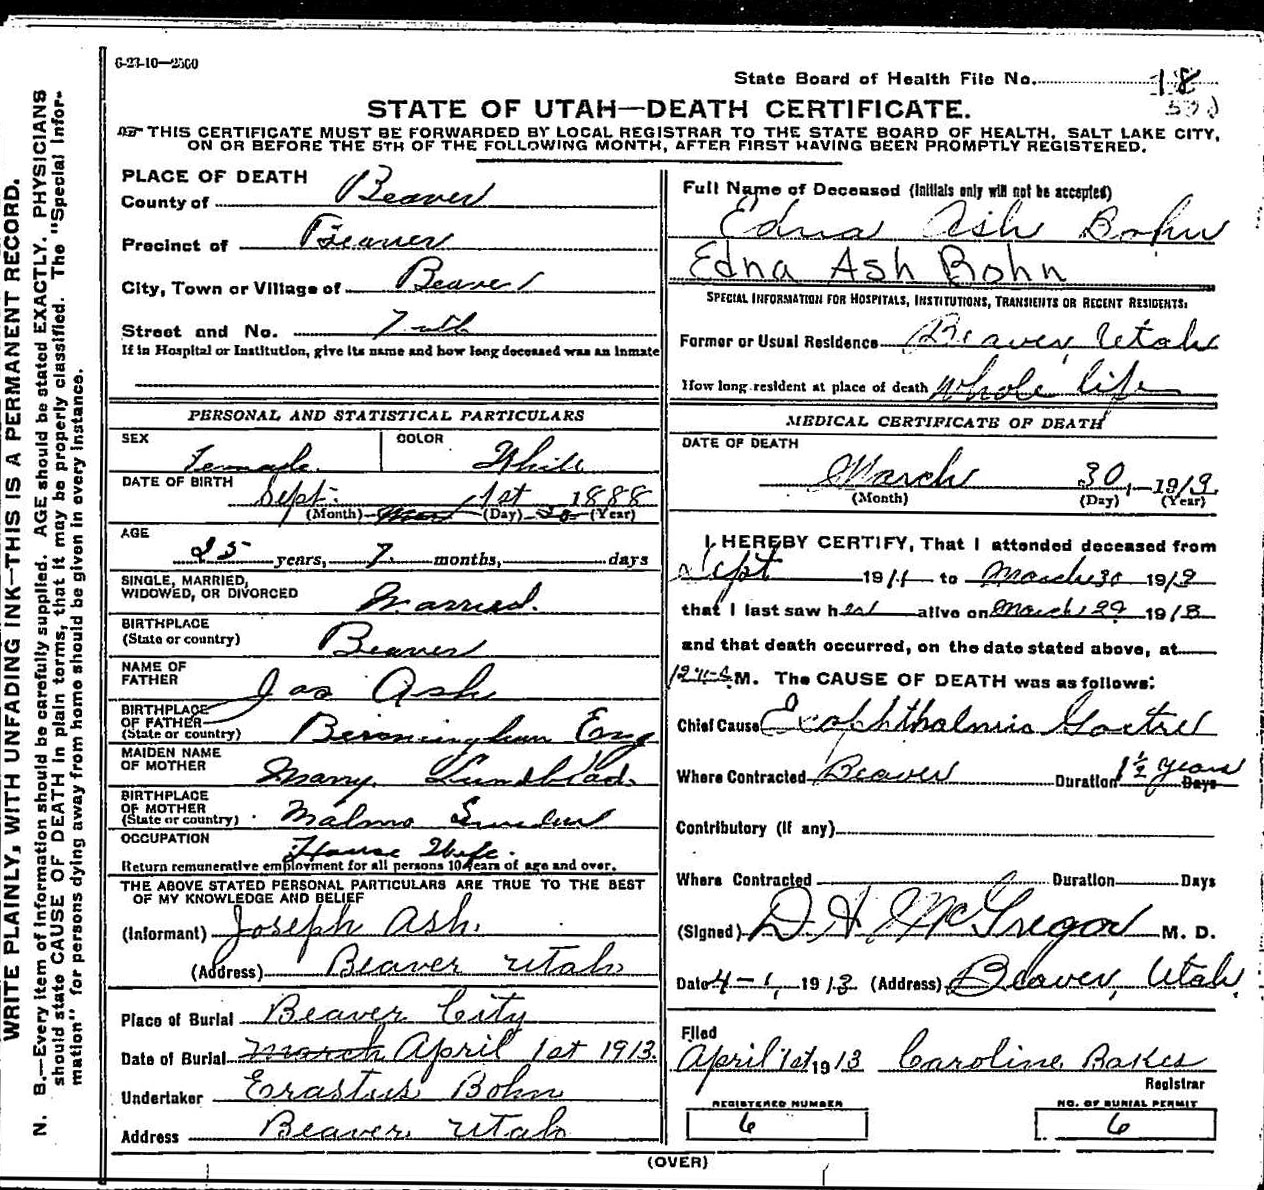 6-23-10—2500
State Board of Health File No. 18
STATE OF UTAH—DEATH CERTIFICATE.
THIS CERTIFICATE MUST BE FORWARDED BY LOCAL REGISTRAR TO THE STATE BOARD OF HEALTH, SALT LAKE CITY,
ON OR BEFORE THE 5TH OF THE FOLLOWING MONTH, AFTER FIRST HAVING BEEN PROMPTLY REGISTERED.
WRITE PLAINLY, WITH UNFADING INK—THIS IS A PERMANENT RECORD.
N. B.—Every item of information should be carefully supplied. AGE should be stated EXACTLY. PHYSICIANS
should state CAUSE OF DEATH in plain terms, that it may be properly classified. The "Special Infor-
mation" for persons dying away from home should be given in every instance.
PLACE OF DEATH
County of Beaver
Precinct of Beaver
City, Town or Village of Beaver
Street and No.
If in Hospital or Institution, give its name and how long deceased was an inmate
PERSONAL AND STATISTICAL PARTICULARS
SEX Female COLOR White
DATE OF BIRTH Sept. 1st 1888
(Month) (Day) (Year)
AGE
25 years, 7 months, days
SINGLE, MARRIED,
WIDOWED, OR DIVORCED Married.
BIRTHPLACE
(State or country) Beaver
NAME OF
FATHER Jos Ash
BIRTHPLACE
OF FATHER
(State or country) Birmingham Eng
MAIDEN NAME
OF MOTHER Mary Lundblad.
BIRTHPLACE
OF MOTHER
(State or country) Malmo Sweden
OCCUPATION House Wife.
Return remunerative employment for all persons 10 years of age and over.
THE ABOVE STATED PERSONAL PARTICULARS ARE TRUE TO THE BEST
OF MY KNOWLEDGE AND BELIEF
(Informant) Joseph Ash.
(Address) Beaver Utah
Place of Burial Beaver City
Date of Burial March April 1st 1913.
Undertaker Erastus Bohn
Address Beaver Utah
Full Name of Deceased (Initials only will not be accepted)
Edna Ash Bohn
Edna Ash Bohn
SPECIAL INFORMATION FOR HOSPITALS, INSTITUTIONS, TRANSIENTS OR RECENT RESIDENTS:
Former or Usual Residence Beaver, Utah
How long resident at place of death whole life
MEDICAL CERTIFICATE OF DEATH
DATE OF DEATH
March 30, 1913.
(Month) (Day) (Year)
I HEREBY CERTIFY, That I attended deceased from
Sept 1911 to March 30 1913
that I last saw her alive on March 29 1913
and that death occurred, on the date stated above, at
M. The CAUSE OF DEATH was as follows:
Chief Cause Exophthalmic Goitre
Where Contracted Beaver Duration 1½ years Days
Contributory (If any)
Where Contracted Duration Days
(Signed) D H McGregor M. D.
Date 4-1, 1913 (Address) Beaver, Utah.
Filed
April 1st 1913 Caroline Bakes
Registrar
REGISTERED NUMBER NO. OF BURIAL PERMIT
6 6
(OVER)